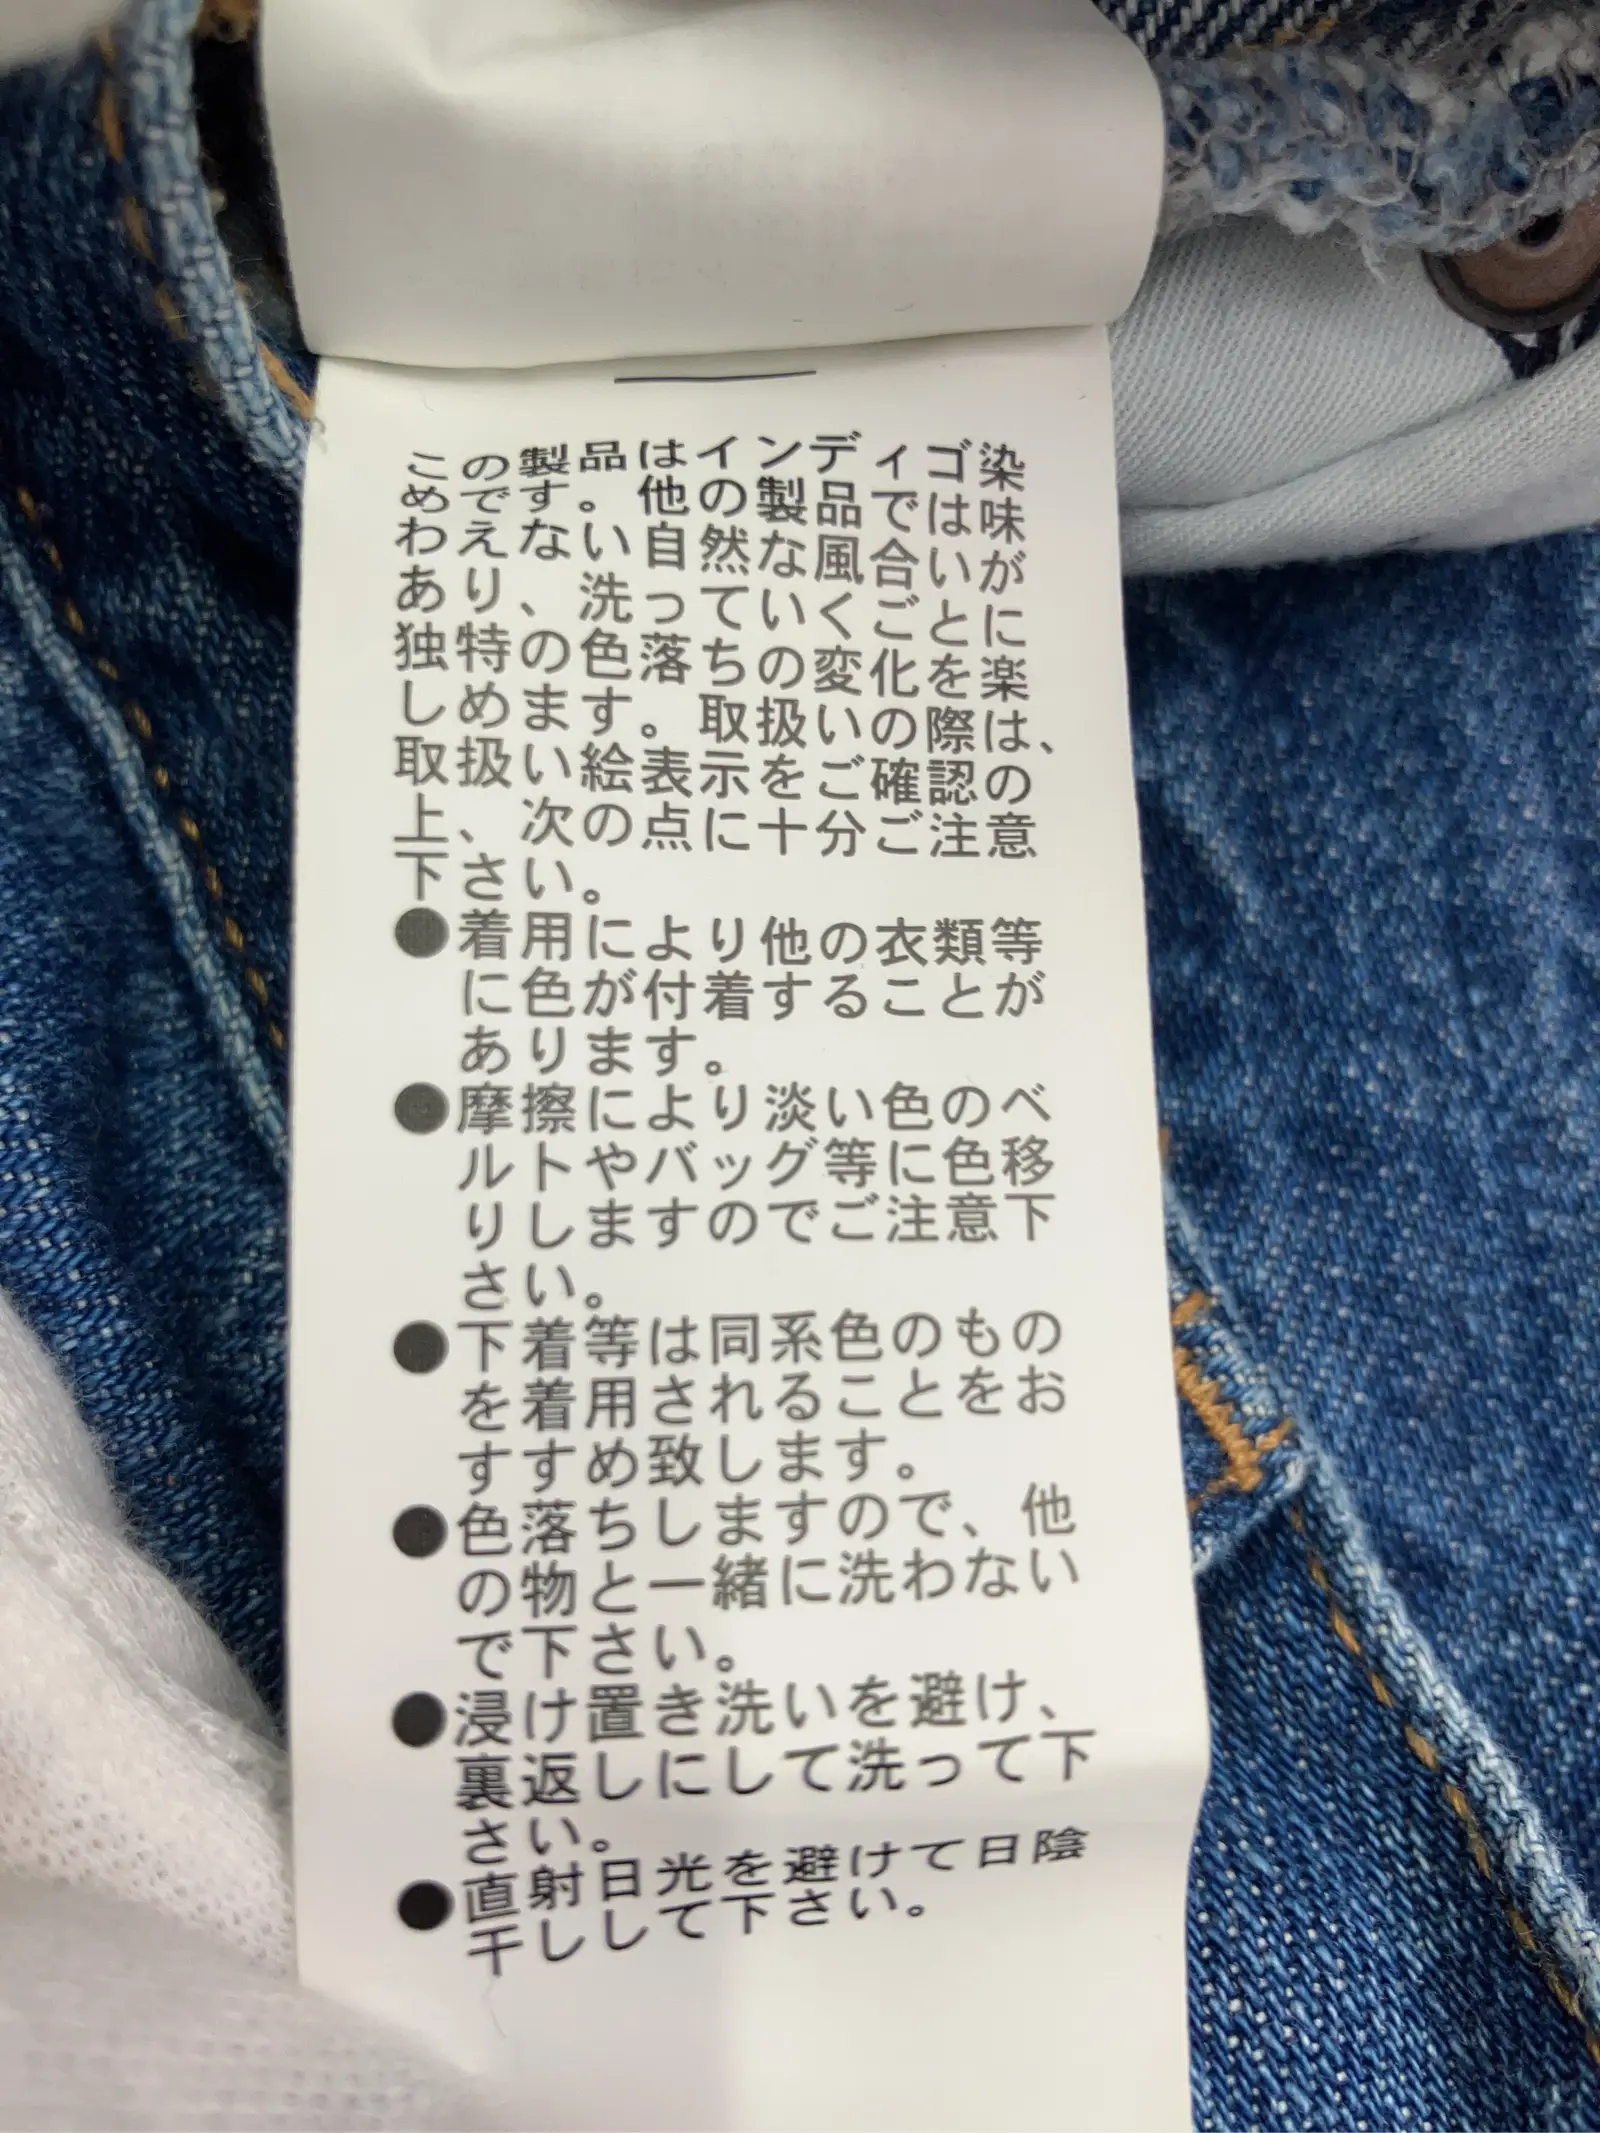 この製品はインディゴ染
めです。他の製品では味
わえない自然な風合いが
あり、洗っていくごとに
独特の色落ちの変化を楽
しめます。取扱いの際は、
取扱い絵表示をご確認の
上、次の点に十分ご注意
下さい。
●着用により他の衣類等
に色が付着することが
あります。
●摩擦により淡い色のベ
ルトやバッグ等に色移
りしますのでご注意下
さい。
●下着等は同系色のもの
を着用されることをお
すすめ致します。
●色落ちしますので、他
の物と一緒に洗わない
で下さい。
●浸け置き洗いを避け、
裏返しにして洗って下
さい。
●直射日光を避けて日陰
干しして下さい。